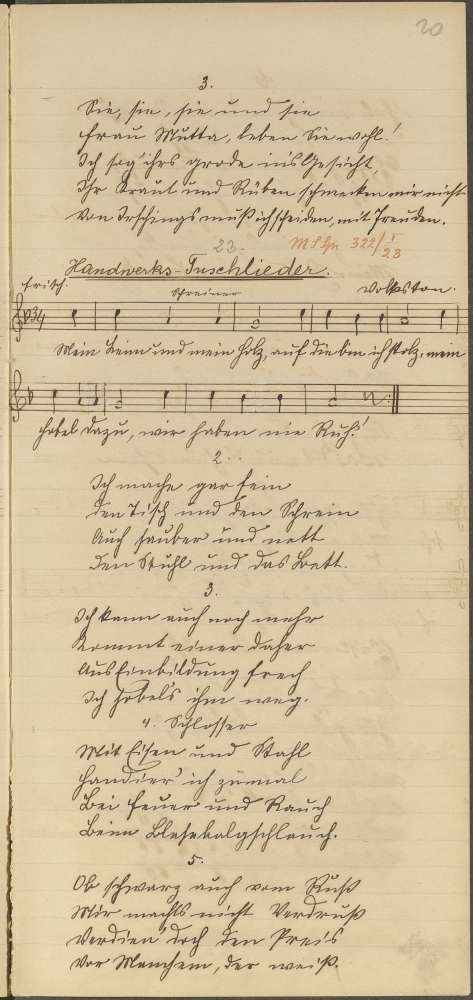 20
3.
Sie, sie, sie und sie
Frau Mutta, leben Sie wohl!
Ich sag' ihrs grade in's Gesicht,
Ihr Kraut und Rüben schmecken mir nicht
von muß ich scheiden, mit Freuden.
23.
322/I
23
Handwerks-Tuschlieder.
frisch.
Schreiner
Volkston.
3/4
Mein Leim und mein Holz, auf die bin ich stolz, mein
Hobel dazu, wir haben nie Ruh!
2.
Ich mache gar fein
den Tisch und den Schrein
Auch sauber und nett
den Stuhl und das Bett.
3.
Ich kann auch noch mehr
Kommt einer daher
Aus Einbildung frech
Ich hobels ihm weg.
4. Schlosser
Mit Eisen und Stahl
Handier' ich zumal
Bei Feuer und Rauch
Beim Blasebalgschlauch.
5.
Ob schwarz auch vom Ruß
Mir machts nicht Verdruß
Verdien' doch den Preis
vor Manchem, der weiß.